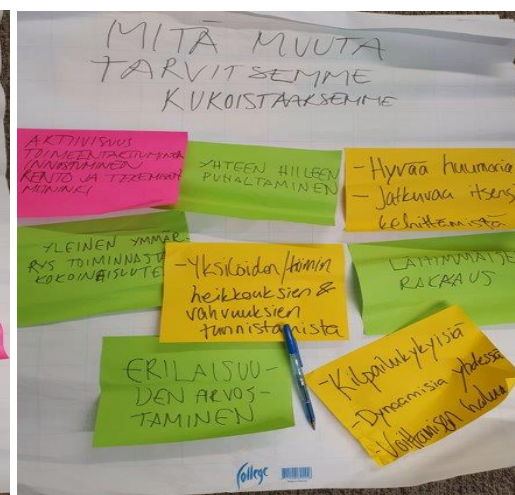 MITÄ MUUTA
TARVITSEMME
KUKOISTAAKSEMME
AKTIIVISUUS
INNOSTUMINEN
RENTO JA
YHTEEN HILLEEN
PUHALTAMINEN
- Hyvää huumoria
- Jatkuvaa itsensä
kehittämistä
YLEINEN YMMÄR-
RYS TOIMINNASTA
- Yksilöiden/tiimin
heikkouksien &
vahvuuksien
tunnistamista
RAKKAUS
ERILAISUU-
DEN ARVOS-
TAMINEN
- Kilpailukykyisiä
- Dynaamisia yhdessä
- Voittamisen halua
College